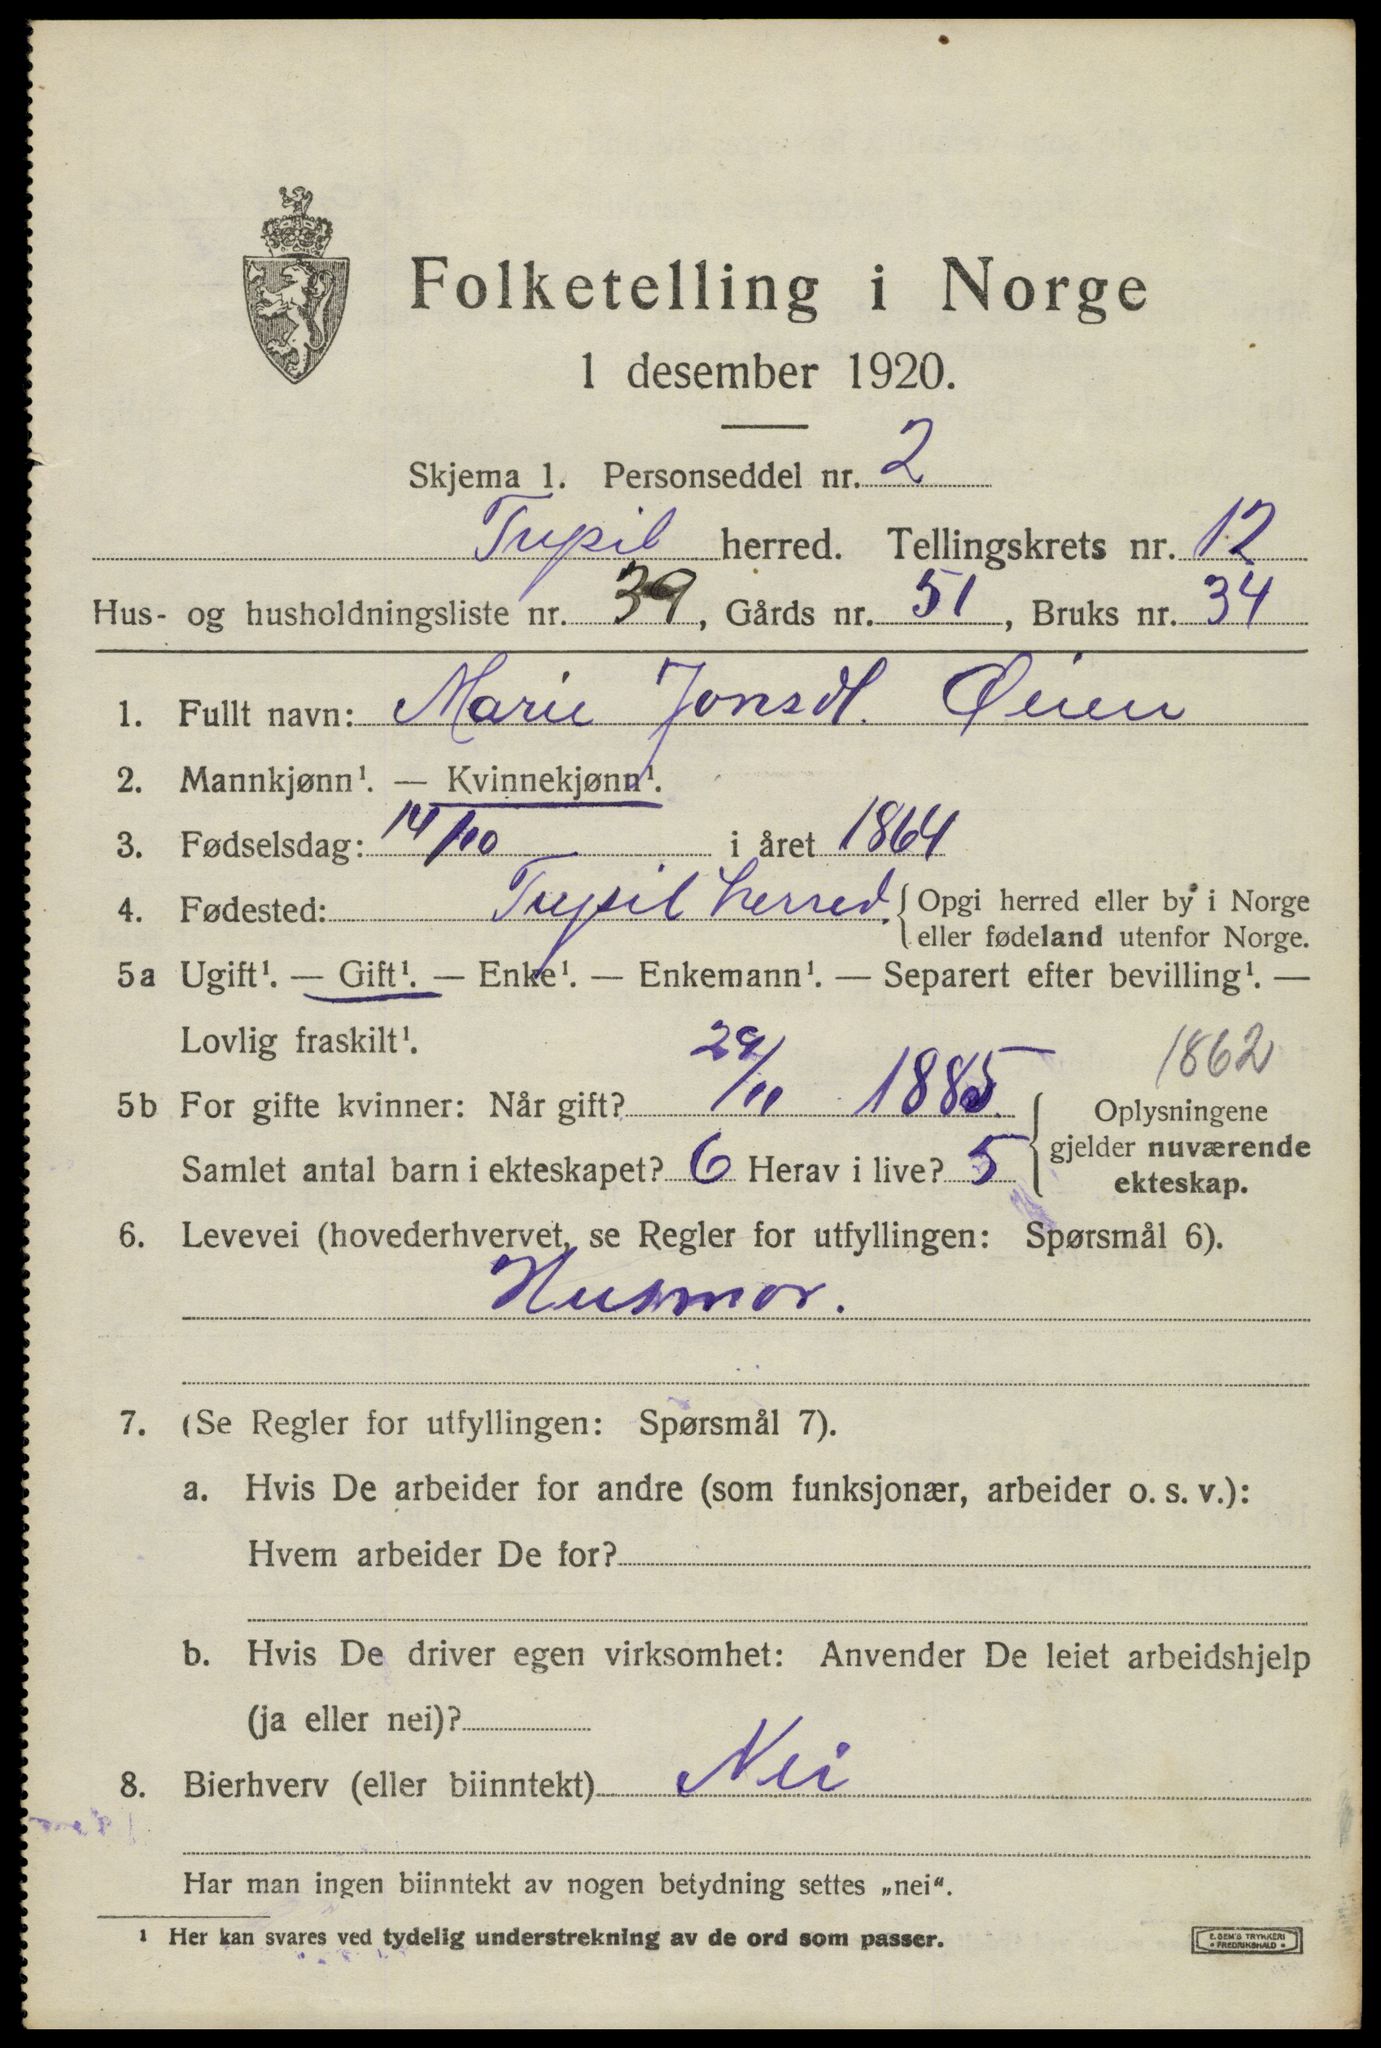 Folketelling i Norge
1 desember 1920.
Skjema 1. Personseddel nr. 2
Trysil herred. Tellingskrets nr. 12
Hus- og husholdningsliste nr. 39, Gårds nr. 51, Bruks nr. 34
1. Fullt navn: Marie Jonsdt. Øien
2. Mannkjønn¹. — Kvinnekjønn¹.
3. Fødselsdag: 14/10 i året 1864
4. Fødested: Trysil herred. { Opgi herred eller by i Norge
eller fødeland utenfor Norge.
5a Ugift¹. — Gift¹. — Enke¹. — Enkemann¹. — Separert efter bevilling¹. —
Lovlig fraskilt¹.
1862
5b For gifte kvinner: Når gift? 29/11 1885
Samlet antal barn i ekteskapet? 6 Herav i live? 5
{ Oplysningene
gjelder nuværende
ekteskap.
6. Levevei (hovederhvervet, se Regler for utfyllingen: Spørsmål 6).
Husmor.
7. (Se Regler for utfyllingen: Spørsmål 7).
a. Hvis De arbeider for andre (som funksjonær, arbeider o. s. v.):
Hvem arbeider De for?
b. Hvis De driver egen virksomhet: Anvender De leiet arbeidshjelp
(ja eller nei)?
8. Bierhverv (eller biinntekt) Nei
Har man ingen biinntekt av nogen betydning settes „nei“.
¹ Her kan svares ved tydelig understrekning av de ord som passer.
E. SEM'S TRYKKERI
• FREDRIKSHALD •